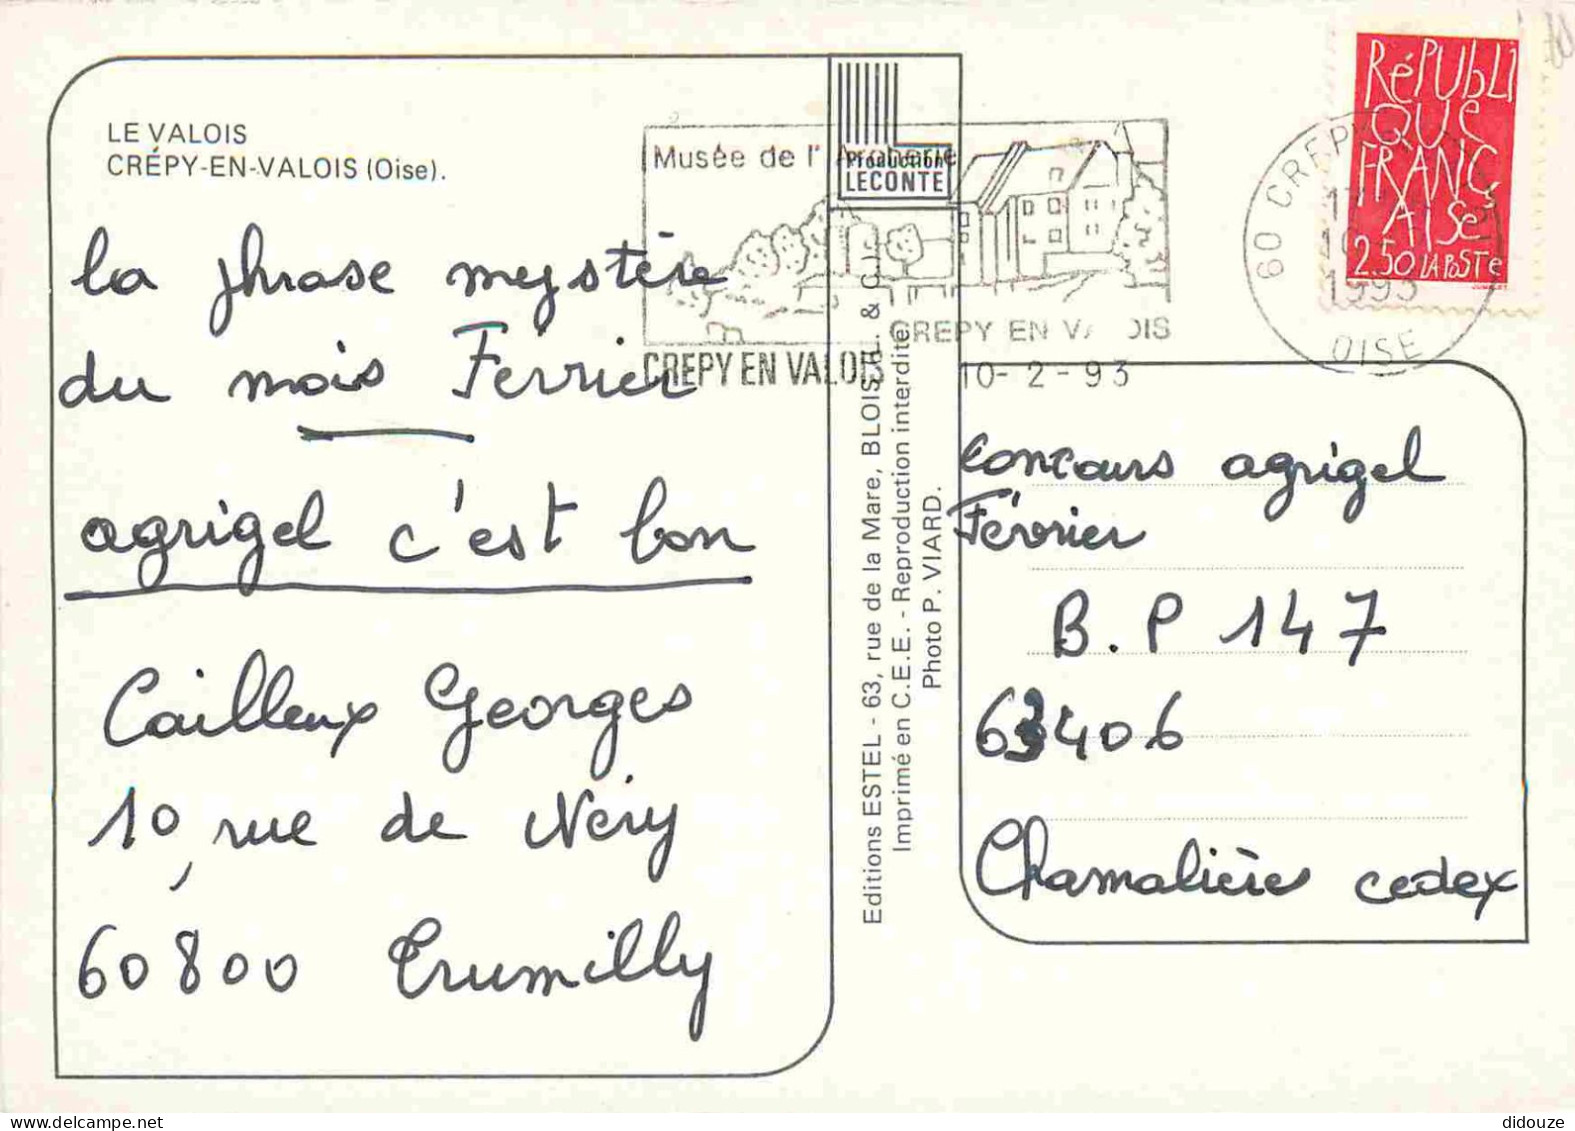 LE VALOIS
CRÉPY-EN-VALOIS (Oise).
la phrase mystère
du mois Ferrier
agrigel c'est bon
Cailleux Georges
10, rue de Néry
60800 Trumilly
Production
LECONTE
Musée de l'Archerie
CREPY EN VALOIS
CREPY EN VALOIS
10-2-93
Editions ESTEL - 63, rue de la Mare, BLOIS
Imprimé en C.E.E. - Reproduction interdite
Photo P. VIARD.
RéPUbLI
QUe
FRANÇ
AISe
2.50 LA POSTe
60 CREPY
1993
OISE
concours agrigel
Février
B.P 147
63406
Chamalières cedex
didouze